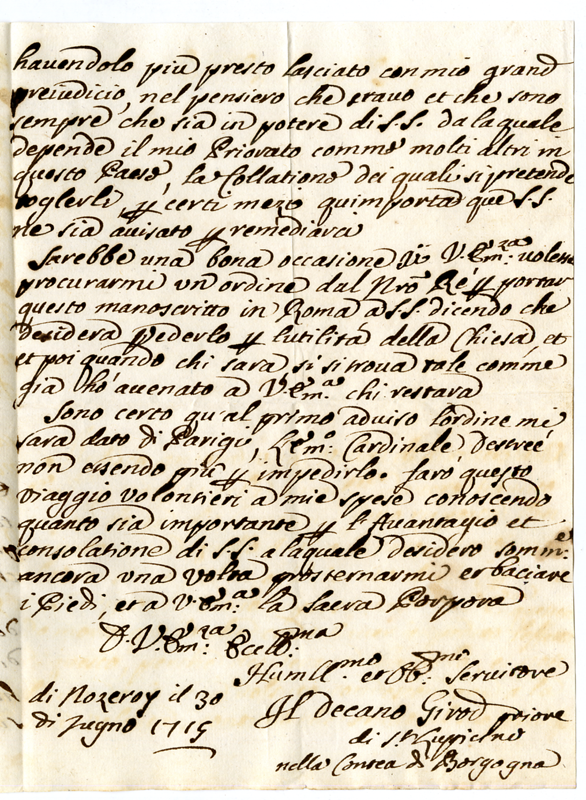 havendolo più presto lasciato con mio grand
preiudicio, nel pensiero che eravo et che sono
sempre che sia in potere di S.S. da la quale
depende il mio Priorato comme molti altri in
questo Paese, la Collatione dei quali si pretende
toglerli, p certi mezo qu'importa que S.S.
ne sia avisato p remediarci
Sarebbe una bona occasione si V. Em.za volesse
procurarmi un ordine dal Nro Ré p portar
questo manoscritto in Roma a S.S. dicendo che
desidera vederlo p lutilità della Chiesa, et
et poi quando chi sara si si trova tale comme
già ho V. Em.a chi restarà
Sono certo qu'al primo aduiso l'ordine mi
sara dato di Parigi, l'Em.o Cardinale Destreé
non essendo più p impedirlo. farò questo
viaggio volontieri a mie spese conoscendo
quanto sia importante p et
consolatione di S.S. a laquale desidero somm.e
ancora una volta prosternarmi et baciare
i Piedi, et a V. Em.a la sacra Porpora
D. V. Em.za Ecell.ma
Humill.mo et Ob.mo Servitore
di Nozeroy il 30
di Jugno 1715
Il Decano Girod priore
di St. Luppicino
nella Contea di Borgogna